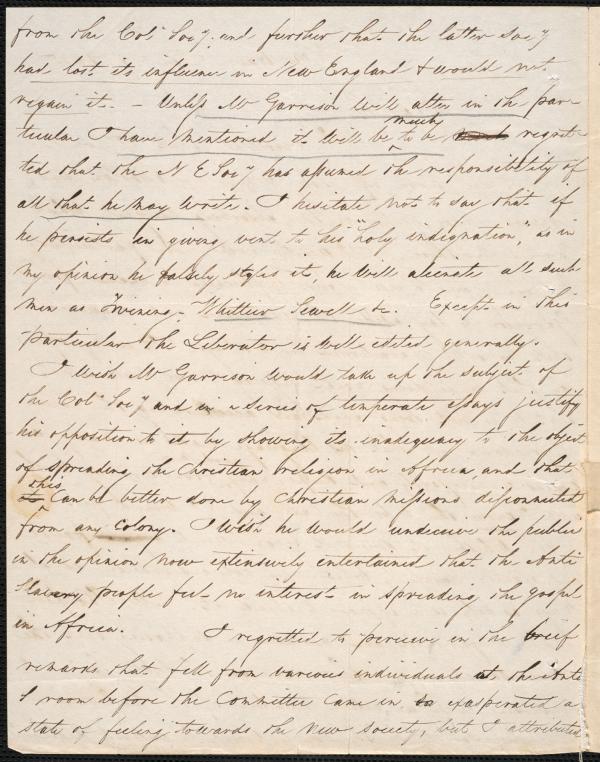 from the Col. Soc'y, and further that the latter Soc'y
had lost its influence in New England & would not
regain it. - Unless Mr Garrison will alter in the par-
ticular I have mentioned it will be much to be regret-
ted that the N E Soc'y has assumed the responsibility of
all that he may write. I hesitate not to say that if
he persists in giving vent to his "holy indignation", as in
my opinion he falsely styles it, he will alienate all such
men as Whittier Sewell &c. Except in this
particular the Liberator is well edited generally.
I wish Mr Garrison would take up the subject of
the Col. Soc'y and in a series of temperate essays justify
his opposition to it by showing its inadequacy to the object
of spreading the Christian religion in Africa, and that
this can be better done by Christian missions disconnected
from any colony. I wish he would undeceive the public
in the opinion now extensively entertained that the Anti
Slavery people feel no interest in spreading the gospel
in Africa. I regretted to perceive in the brief
remarks that fell from various individuals at the Ante
room before the Committee came in, so exasperated a
state of feeling towards the New Society, but I attributed